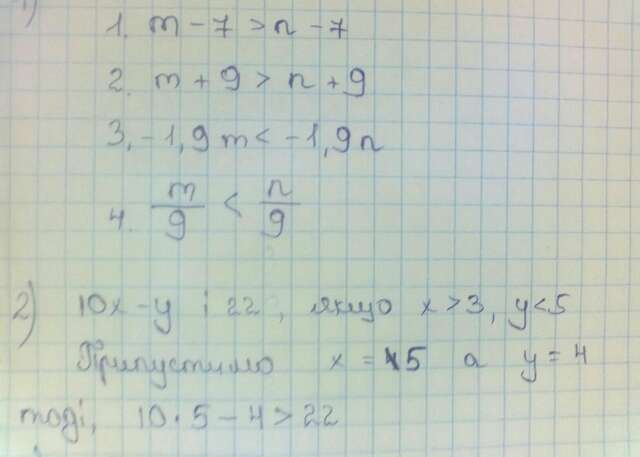 1)
1. m - 7 > n - 7
2. m + 9 > n + 9
3, -1,9m < -1,9n
4. m/9 < n/9
2) 10x - y і 22, якщо x > 3, y < 5
Припустимо x = 5 а y = 4
тоді, 10 · 5 - 4 > 22